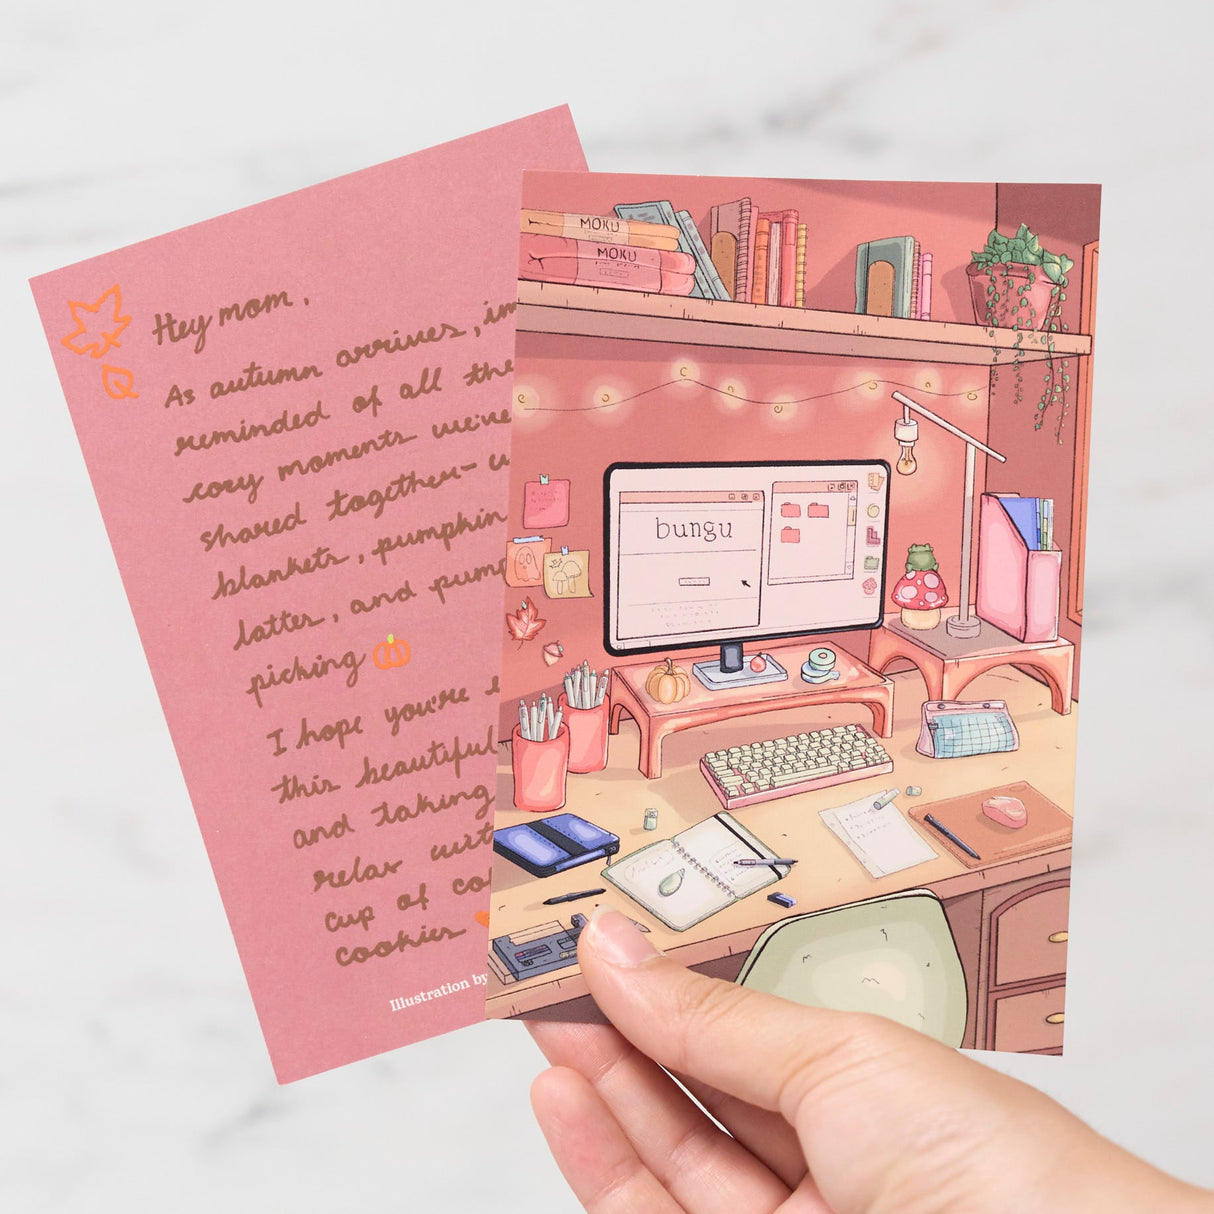 Hey mom,
As autumn arrives, i'm
reminded of all the
cozy moments we've
shared together-
blankets, pumpkin
latter, and
picking
I hope you're
this beautiful
and taking
relax
cup of
cookies
Illustration by
MOKU
MOKU
bungu